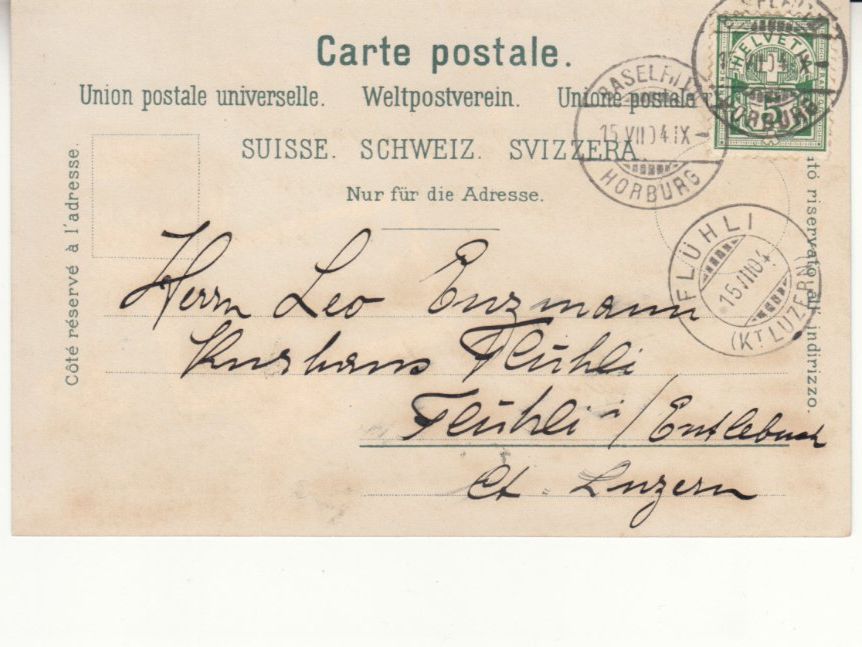 Carte postale.
Union postale universelle. Weltpostverein. Unione postale
SUISSE. SCHWEIZ. SVIZZERA.
Nur für die Adresse.
Côté réservé à l'adresse.
riservato all' indirizzo.
HELVETIA
5
BASEL
15.VII.04.IX-
HORBURG
HORBURG
FLÜHLI
15.VII.04
(KT LUZERN)
Herrn Leo Enzmann
Kurhaus Flühli
Flühli i/Entlebuch
Ct. Luzern